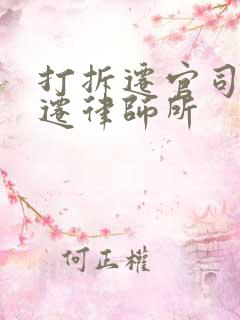 打拆遷官司
遷律師所
何正權